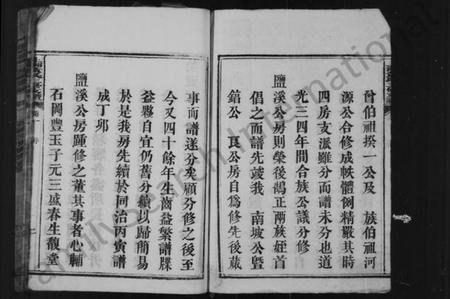 曾伯祖揆一公及　族伯祖河
源公合修成軼體例精嚴其時
四房支派雖分而譜未分也道
光三四年間合族公議分修
鹽溪公房則榮後謁正兩族姪首
倡之而譜先竣我　南坡公曁
錯公　良公房自爲修先後蕆
事而譜遂分矣顧分修之後至
今又四十餘年生齒益繁譜牒
益夥自宜仍舊分續以歸簡易
於是我房先續於同治丙寅譜
成丁卯
鹽溪公房踵修之董其事者心輔
石岡豐玉子元三戚春生馥堂